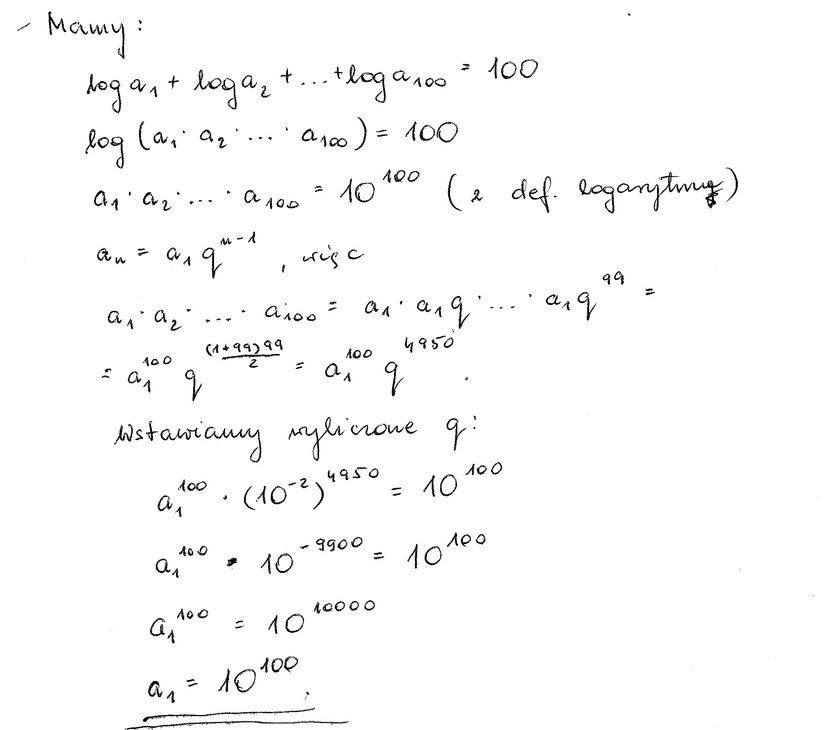 – Mamy:
log a₁ + log a₂ + ... + log a₁₀₀ = 100
log (a₁ · a₂ · ... · a₁₀₀) = 100
a₁ · a₂ · ... · a₁₀₀ = 10¹⁰⁰ (z def. logarytmu)
aₙ = a₁ qⁿ⁻¹, więc
a₁ · a₂ · ... · a₁₀₀ = a₁ · a₁q · ... · a₁q⁹⁹ =
= a₁¹⁰⁰ q^((1+99)99/2) = a₁¹⁰⁰ q⁴⁹⁵⁰.
Wstawiamy wyliczone q:
a₁¹⁰⁰ · (10⁻²)⁴⁹⁵⁰ = 10¹⁰⁰
a₁¹⁰⁰ · 10⁻⁹⁹⁰⁰ = 10¹⁰⁰
a₁¹⁰⁰ = 10¹⁰⁰⁰⁰
a₁ = 10¹⁰⁰.